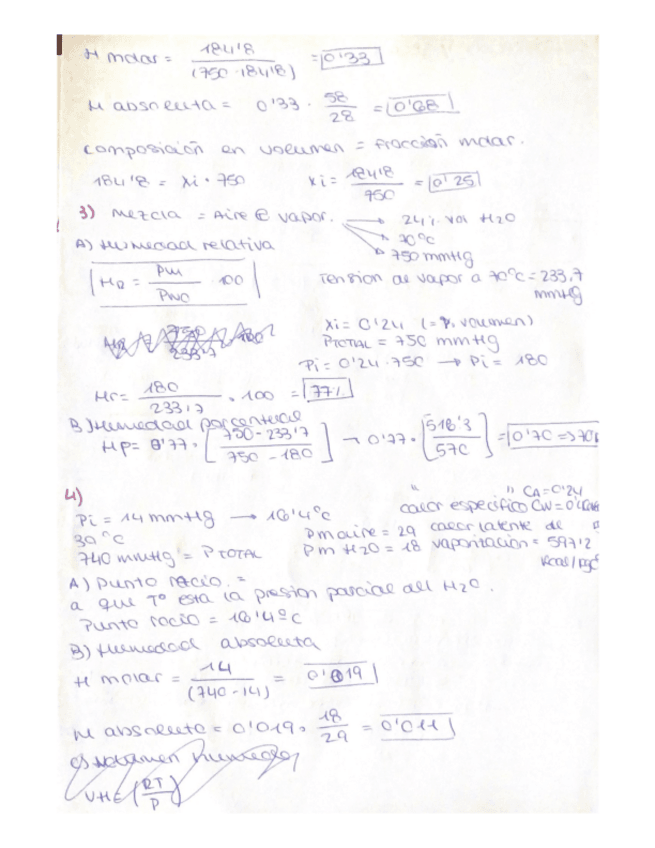 H molar = 184'8 / (750-184'8) = 0'33
H absoluta = 0'33 · 58/28 = 0'68
composición en volumen = fracción molar.
184'8 = xi · 750   xi = 184'8/750 = 0'25
3) Mezcla = Aire @ vapor. → 24% vol H2O
→ 70ºC
→ 750 mmHg
A) Humedad relativa
HR = Pw/Pwo · 100
Tension de vapor a 70ºC = 233,7 mmHg
xi = 0'24 (= % volumen)
PTOTAL = 750 mmHg
Pi = 0'24 · 750 → Pi = 180
Hr = 180/233,7 · 100 = 77%
B) Humedad porcentual
HP = 0'77 · [750-233'7 / 750-180] → 0'77 · [516'3/570] = 0'70 => 70
4)
" " CA = 0'24
Pi = 14 mmHg → 16'4ºC   calor específico CW = 0'
30ºC   Pm aire = 29   calor latente de
740 mmHg = PTOTAL   Pm H2O = 18   vaporización = 597'2
Kcal/Kg
A) Punto rocío. =
a que Tº esta la presion parcial del H2O.
Punto rocío = 16'4ºC
B) Humedad absoluta
H molar = 14 / (740-14) = 0'019
H absoluta = 0'019 · 18/29 = 0'011
C) Volumen humedo
VH = (RT/P)